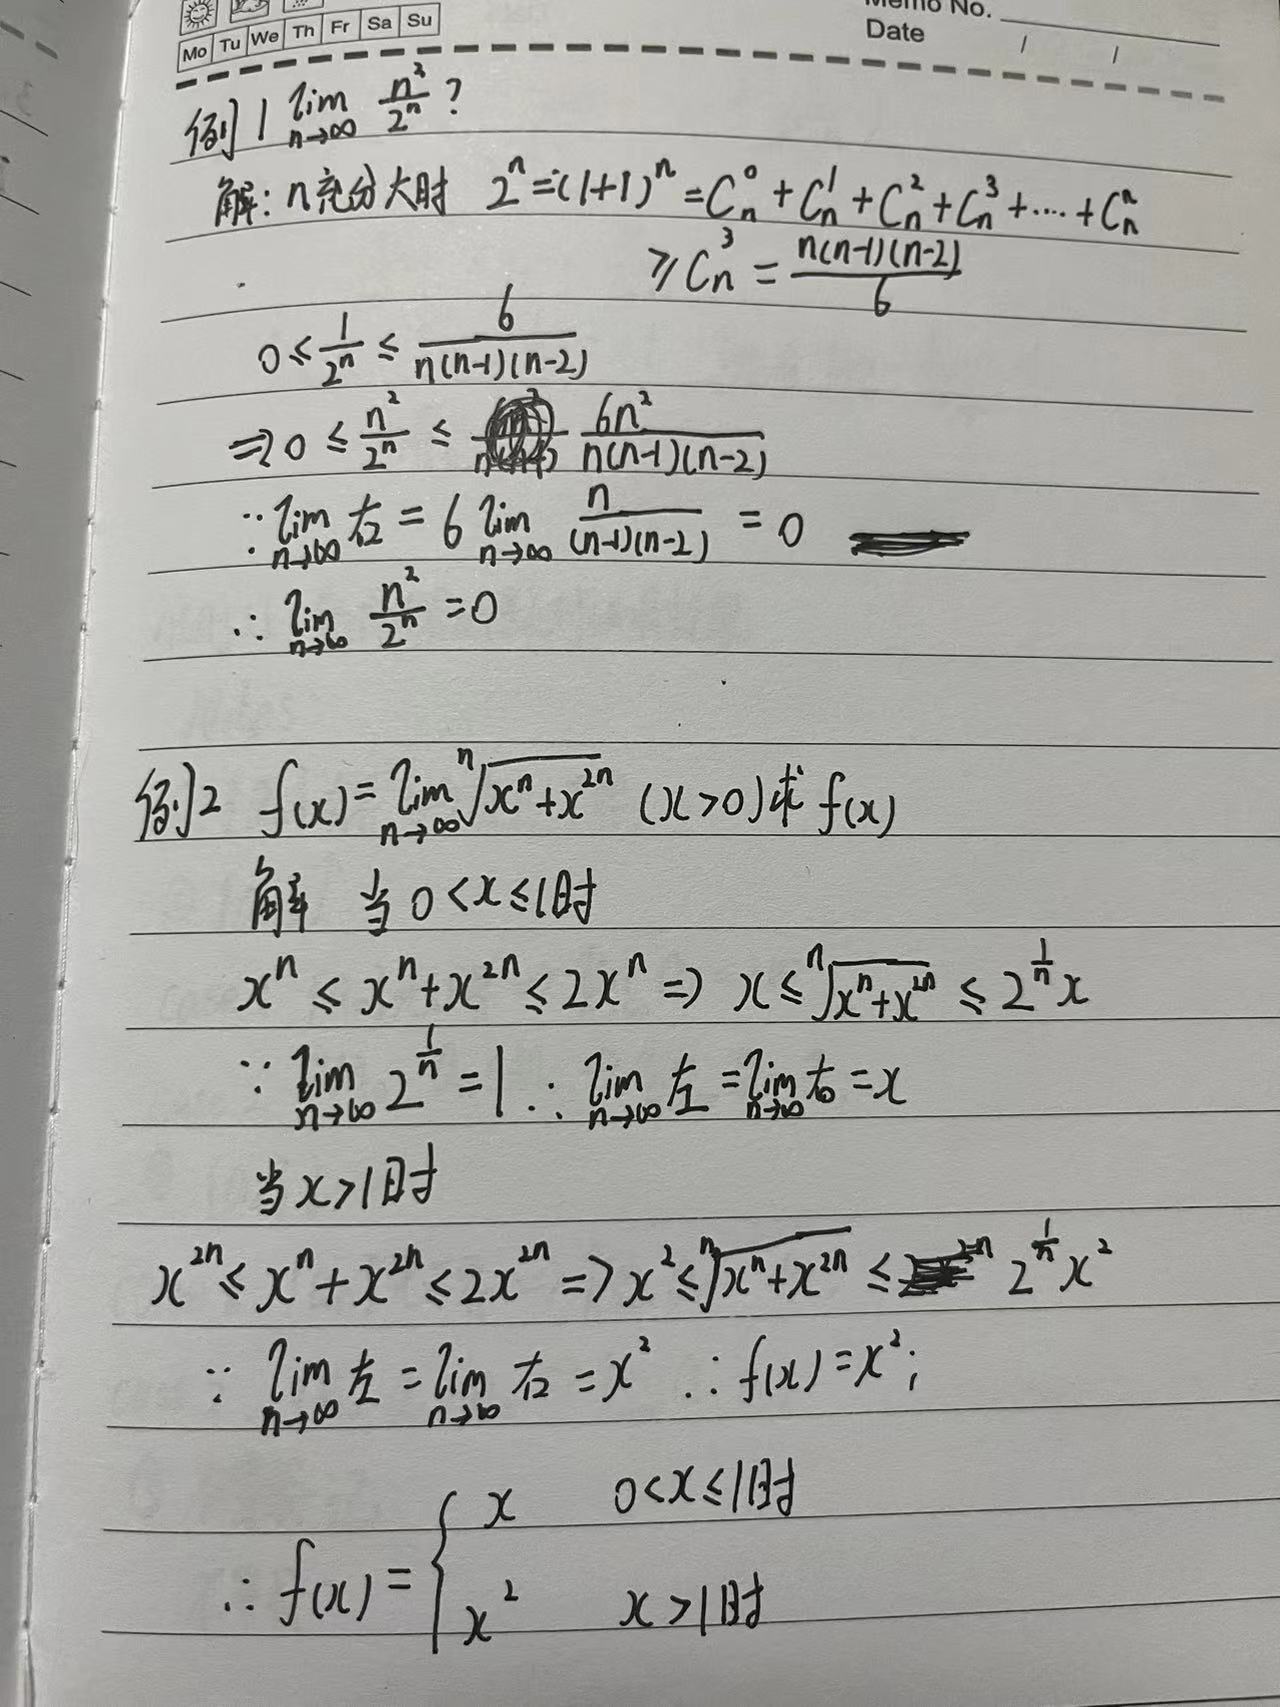 Memo No.
Mo Tu We Th Fr Sa Su
Date / /
例1 lim_{n→∞} n²/2ⁿ ?
解: n充分大时 2ⁿ=(1+1)ⁿ=C_n^0+C_n^1+C_n^2+C_n^3+....+C_n^n
≥C_n^3=n(n-1)(n-2)/6
0≤1/2ⁿ≤6/n(n-1)(n-2)
⇒0≤n²/2ⁿ≤6n²/n(n-1)(n-2)
∵lim_{n→∞}右=6lim_{n→∞} n/(n-1)(n-2)=0
∴lim_{n→∞} n²/2ⁿ=0
例2 f(x)=lim_{n→∞} ⁿ√(xⁿ+x²ⁿ) (x>0)求f(x)
解 当0<x≤1时
xⁿ≤xⁿ+x²ⁿ≤2xⁿ⇒x≤ⁿ√(xⁿ+x²ⁿ)≤2^{1/n}x
∵lim_{n→∞}2^{1/n}=1∴lim_{n→∞}左=lim_{n→∞}右=x
当x>1时
x²ⁿ≤xⁿ+x²ⁿ≤2x²ⁿ⇒x²≤ⁿ√(xⁿ+x²ⁿ)≤2^{1/n}x²
∵lim_{n→∞}左=lim_{n→∞}右=x² ∴f(x)=x²;
x 0<x≤1时
∴f(x)={
x² x>1时